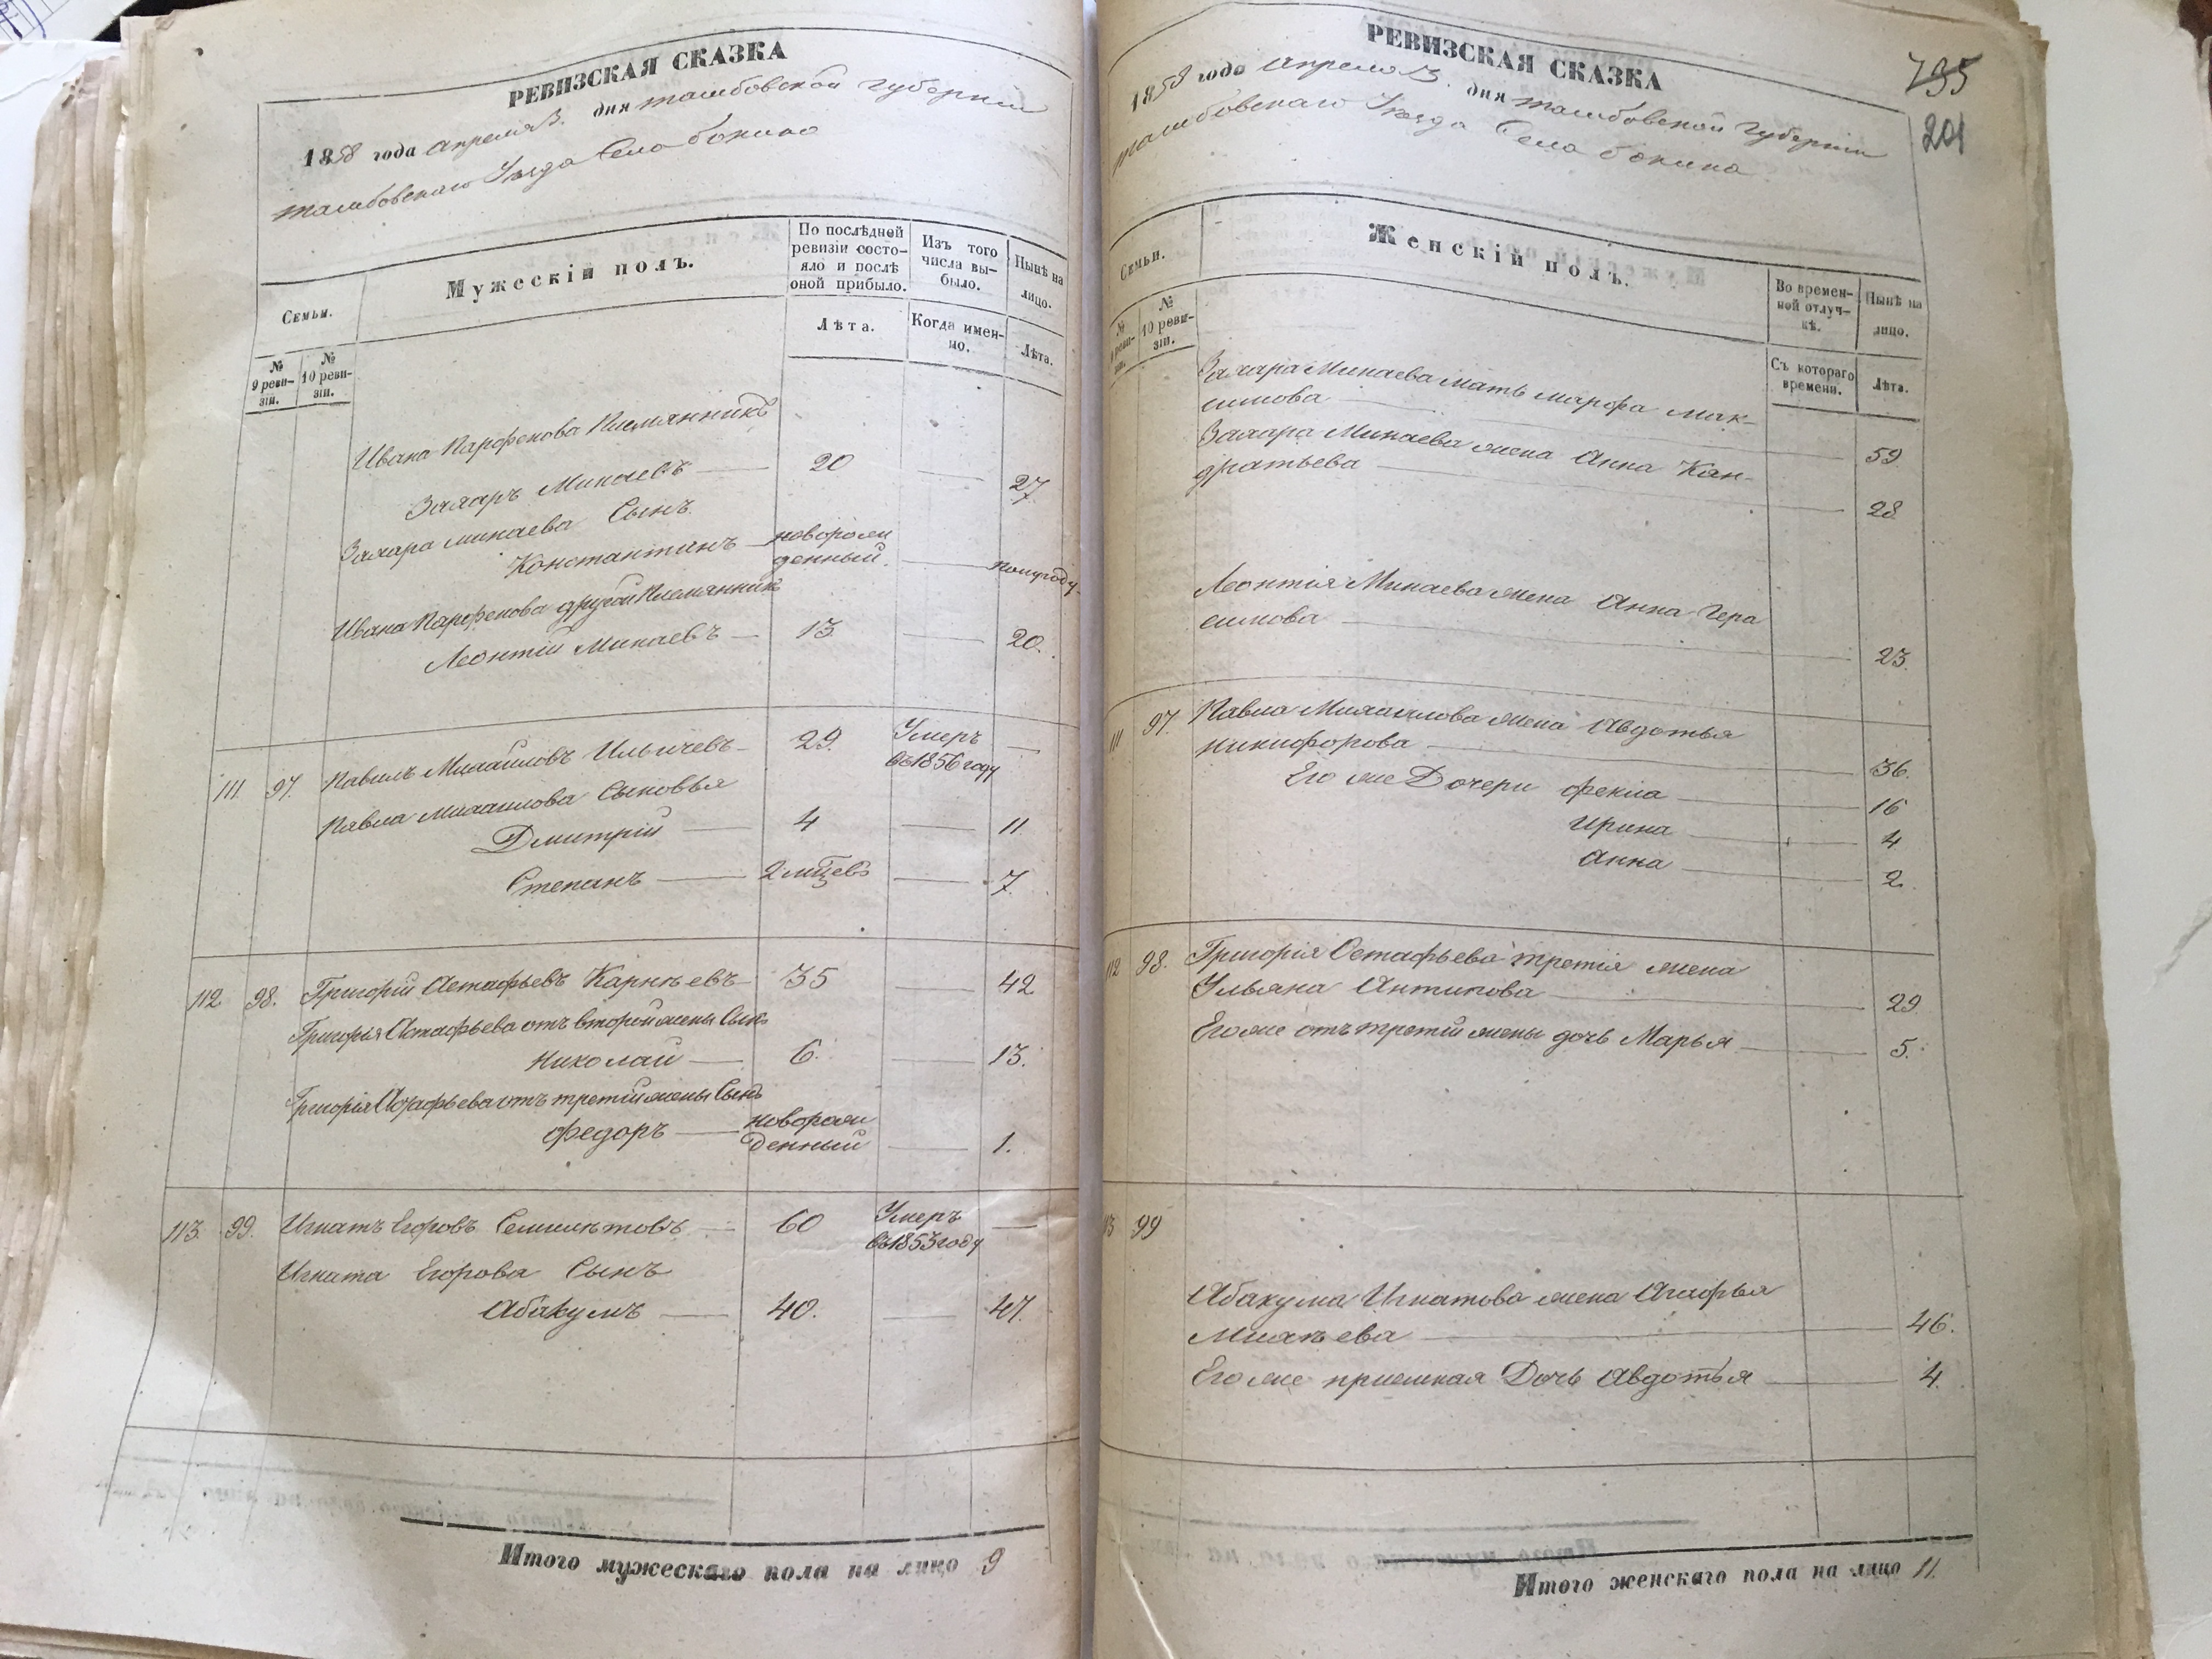 РЕВИЗСКАЯ СКАЗКА
1858 года апреля 3. дня тамбовской губернии
тамбовскаго Уезда Села бокино
Семьи.
Мужескій полъ.
По послѣдней ревизіи состояло и послѣ оной прибыло.
Изъ того числа выбыло.
Нынѣ на лицо.
№ 9 ревизіи.
№ 10 ревизіи.
Лѣта.
Когда именно.
Лѣта.
Ивана Парфенова Племянникъ
Захаръ Минаевъ 20 27
Захара минаева Сынъ
Константинъ новорожденный. полугоду
Ивана Парфенова другой Племянник
Леонтій Минаевъ 13 20.
111 97. Павилъ Михайловъ Ильичевъ 29. Умеръ въ 1856 году
Павла михаилова Сыновья
Дмитрій 4 11.
Степанъ 2 мцевъ 7.
112 98. Григорій Астафьевъ Карнѣевъ 35 42.
Григорія Астафьева отъ второй жены Сын
Николай 6. 13.
Григорія Астафьева отъ третій жены Сынъ
Федоръ новорожденный 1.
113. 99. Игнатъ Егоровъ Семилѣтовъ 60 Умеръ въ 1853 году
Игната Егорова Сынъ
Абакумъ 40. 47.
Итого мужескаго пола на лицо 9
РЕВИЗСКАЯ СКАЗКА
1858 года апреля 3. дня тамбовской Губернии
тамбовскаго Уезда Села бокина
795
201
Семьи.
Женскій полъ.
Во временной отлучкѣ.
Нынѣ на лицо.
№ 10 ревизіи.
Съ котораго времени.
Лѣта.
Захара Минаева мать марфа мак-
симова 59
Захара Минаева жена Анна Кан-
дратьева 28
Леонтія Минаева жена Анна Гера
симова 23.
111 97. Павла Михаилова жена Авдотья
никифорова 36.
Его же Дочери Фекла 16
Ирина 4
Анна 2.
112 98. Григорія Остафьева третія жена
Ульяна Антипова 29
Его же отъ третій жены дочь Марья 5.
99
Абакума Игнатова жена Агафья
Михѣева 46.
Его же приемная Дочь Авдотья 4.
Итого женскаго пола на лицо 11.